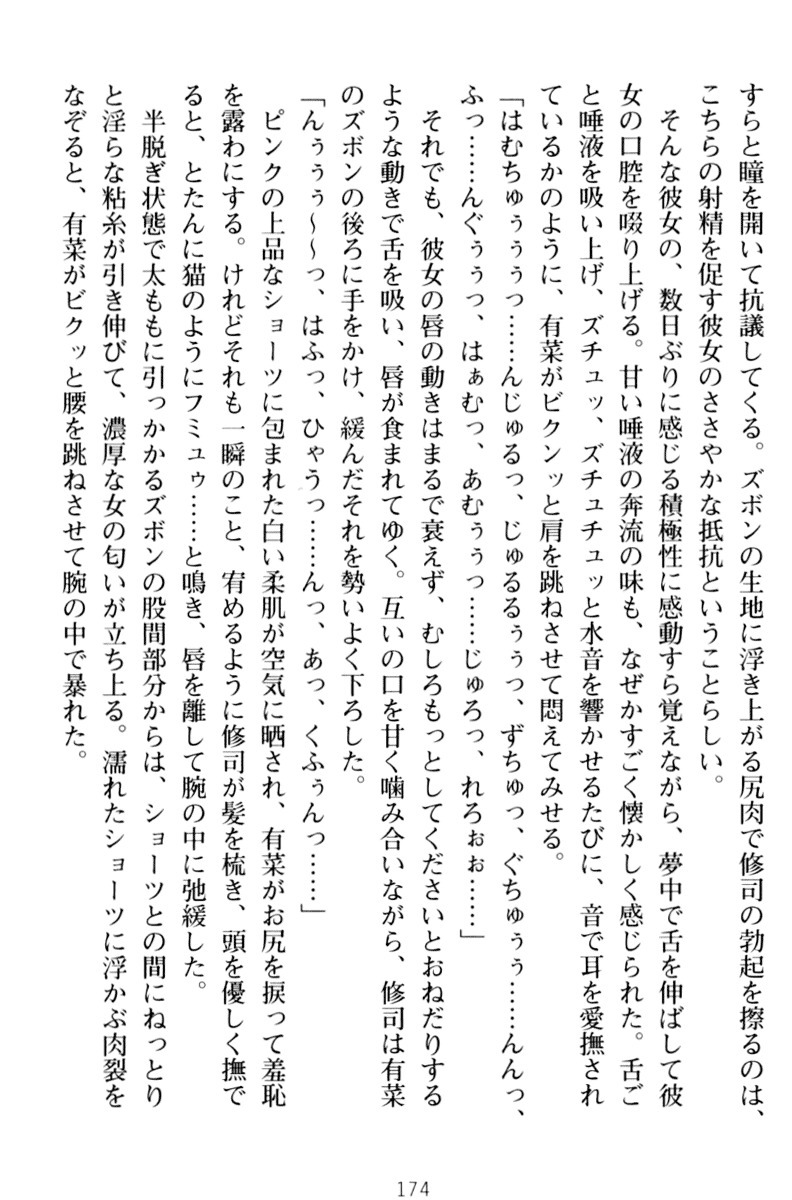 すらと瞳を開いて抗議してくる。ズボンの生地に浮き上がる尻肉で修司の勃起を擦るのは、
こちらの射精を促す彼女のささやかな抵抗ということらしい。
そんな彼女の、数日ぶりに感じる積極性に感動すら覚えながら、夢中で舌を伸ばして彼
女の口腔を啜り上げる。甘い唾液の奔流の味も、なぜかすごく懐かしく感じられた。舌ご
と唾液を吸い上げ、ズチュッ、ズチュチュッと水音を響かせるたびに、音で耳を愛撫され
ているかのように、有菜がビクンッと肩を跳ねさせて悶えてみせる。
「はむちゅぅぅぅっ……んじゅるっ、じゅるるぅぅっ、ずちゅっ、ぐちゅぅぅ……んんっ、
ふっ……んぐぅぅっ、はぁむっ、あむぅぅっ……じゅろっ、れろぉぉ……」
それでも、彼女の唇の動きはまるで衰えず、むしろもっとしてくださいとおねだりする
ような動きで舌を吸い、唇が食まれてゆく。互いの口を甘く噛み合いながら、修司は有菜
のズボンの後ろに手をかけ、緩んだそれを勢いよく下ろした。
「んぅぅぅ～～っ、はふっ、ひゃうっ……んっ、あっ、くふぅんっ……」
ピンクの上品なショーツに包まれた白い柔肌が空気に晒され、有菜がお尻を捩って羞恥
を露わにする。けれどそれも一瞬のこと、宥めるように修司が髪を梳き、頭を優しく撫で
ると、とたんに猫のようにフミュゥ……と鳴き、唇を離して腕の中に弛緩した。
半脱ぎ状態で太ももに引っかかるズボンの股間部分からは、ショーツとの間にねっとり
と淫らな粘糸が引き伸びて、濃厚な女の匂いが立ち上る。濡れたショーツに浮かぶ肉裂を
なぞると、有菜がビクッと腰を跳ねさせて腕の中で暴れた。
174